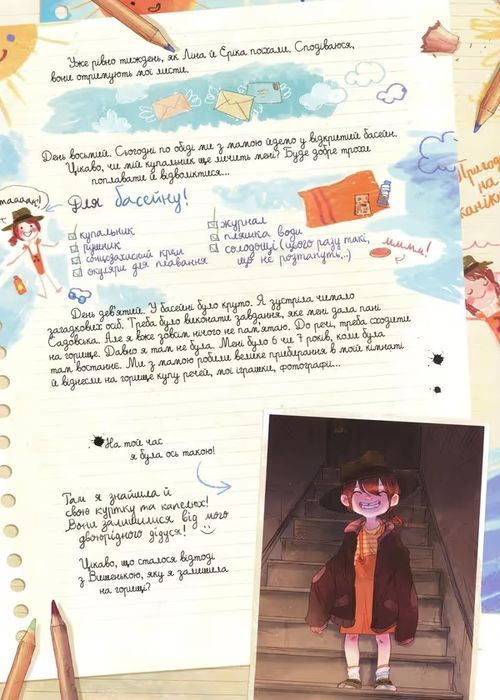 Уже рівно тиждень, як Ліна й Еріка поїхали. Сподіваюся,
вони отримують мої листи.
День восьмий. Сьогодні по обіді ми з мамою йдемо у відкритий басейн.
Цікаво, чи мій купальник ще личить мені? Буде добре трохи
поплавати й відволіктися...
Для басейну!
купальник
рушник
сонцезахисний крем
окуляри для плавання
журнал
пляшка води
солодощі (цього разу такі,
що не розтануть...)
ммм!
Пригоди
на
канікулах
День дев'ятий. У басейні було круто. Я зустріла чимало
загадкових осіб. Треба було виконати завдання, яке мені дала пані
Садовська. Але я вже зовсім нічого не пам'ятаю. До речі, треба сходити
на горище. Давно я там не була. Мені було 6 чи 7 років, коли була
там востаннє. Ми з мамою робили велике прибирання в моїй кімнаті
й віднесли на горище купу речей, мої іграшки, фотографії...
На той час
я була ось такою!
Там я знайшла й
свою куртку та капелюх!
Вони залишилися від мого
двоюрідного дідуся!
Цікаво, що сталося відтоді
з Вишенькою, яку я залишила
на горищі?